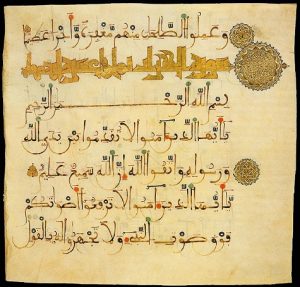 وعملوا الصلحت منهم مغفرة وأجرا عظيما
سورة الحجرات
بسم الله الرحمن الرحيم
يأيها الذين ءامنوا لا تقدموا بين يدي الله
ورسوله واتقوا الله إن الله سميع عليم
يأيها الذين ءامنوا لا ترفعوا أصوتكم
فوق صوت النبي ولا تجهروا له بالقول